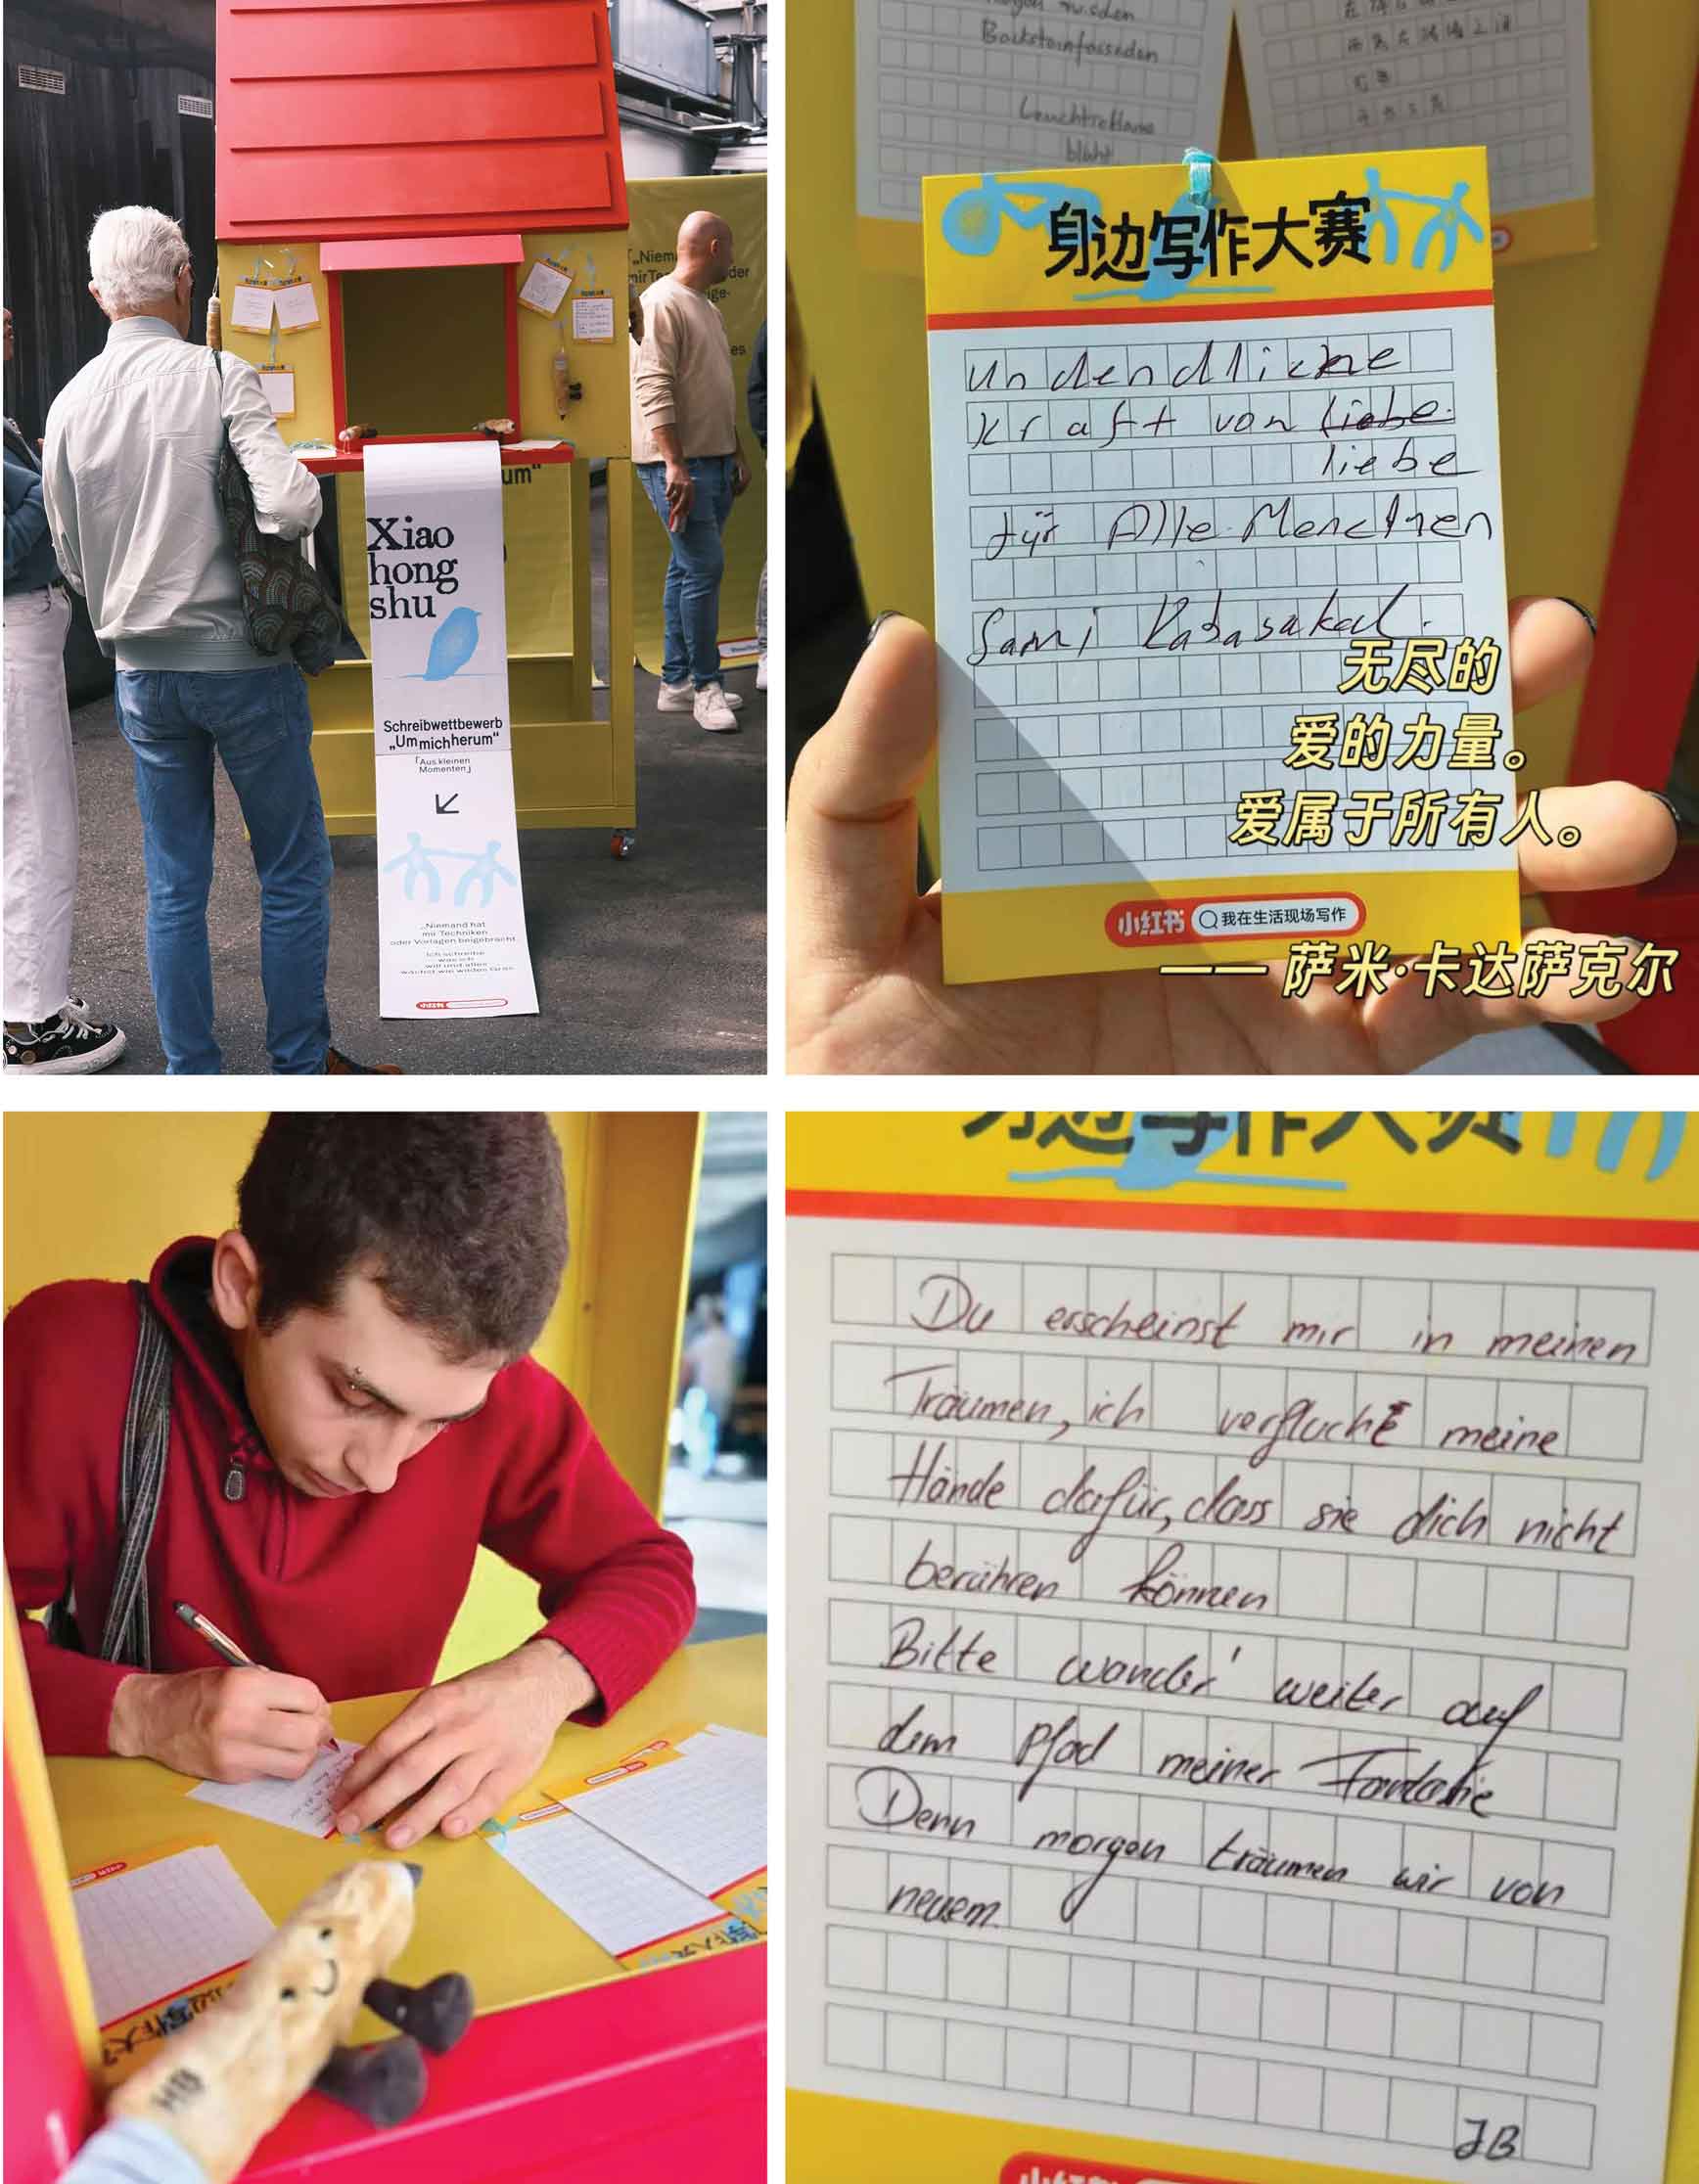 „Niem
mir Te
der
ige-
es
um"
Xiao
hong
shu
Schreibwettbewerb
„Um mich herum"
「Aus kleinen
Momenten」
„Niemand hat
mir Techniken
oder Vorlagen beigebracht.
Ich schreibe
was ich
war und alles
wächst wie wildes Gras.
小红书
Backsteinfassaden
Leuchtreklame
blüht
身边写作大赛
undendliche
Kraft von liebe.
liebe
für Alle Menchhen
Sami Kadasakal.
无尽的
爱的力量。
爱属于所有人。
小红书 我在生活现场写作
—— 萨米·卡达萨克尔
HB
身边写作大赛
Du erscheinst mir in meinen
Träumen, ich verfluche meine
Hände dafür, dass sie dich nicht
berühren können
Bitte wander' weiter auf
dem Pfad meiner Fantasie
Denn morgen träumen wir von
neuem.
JB
小红书